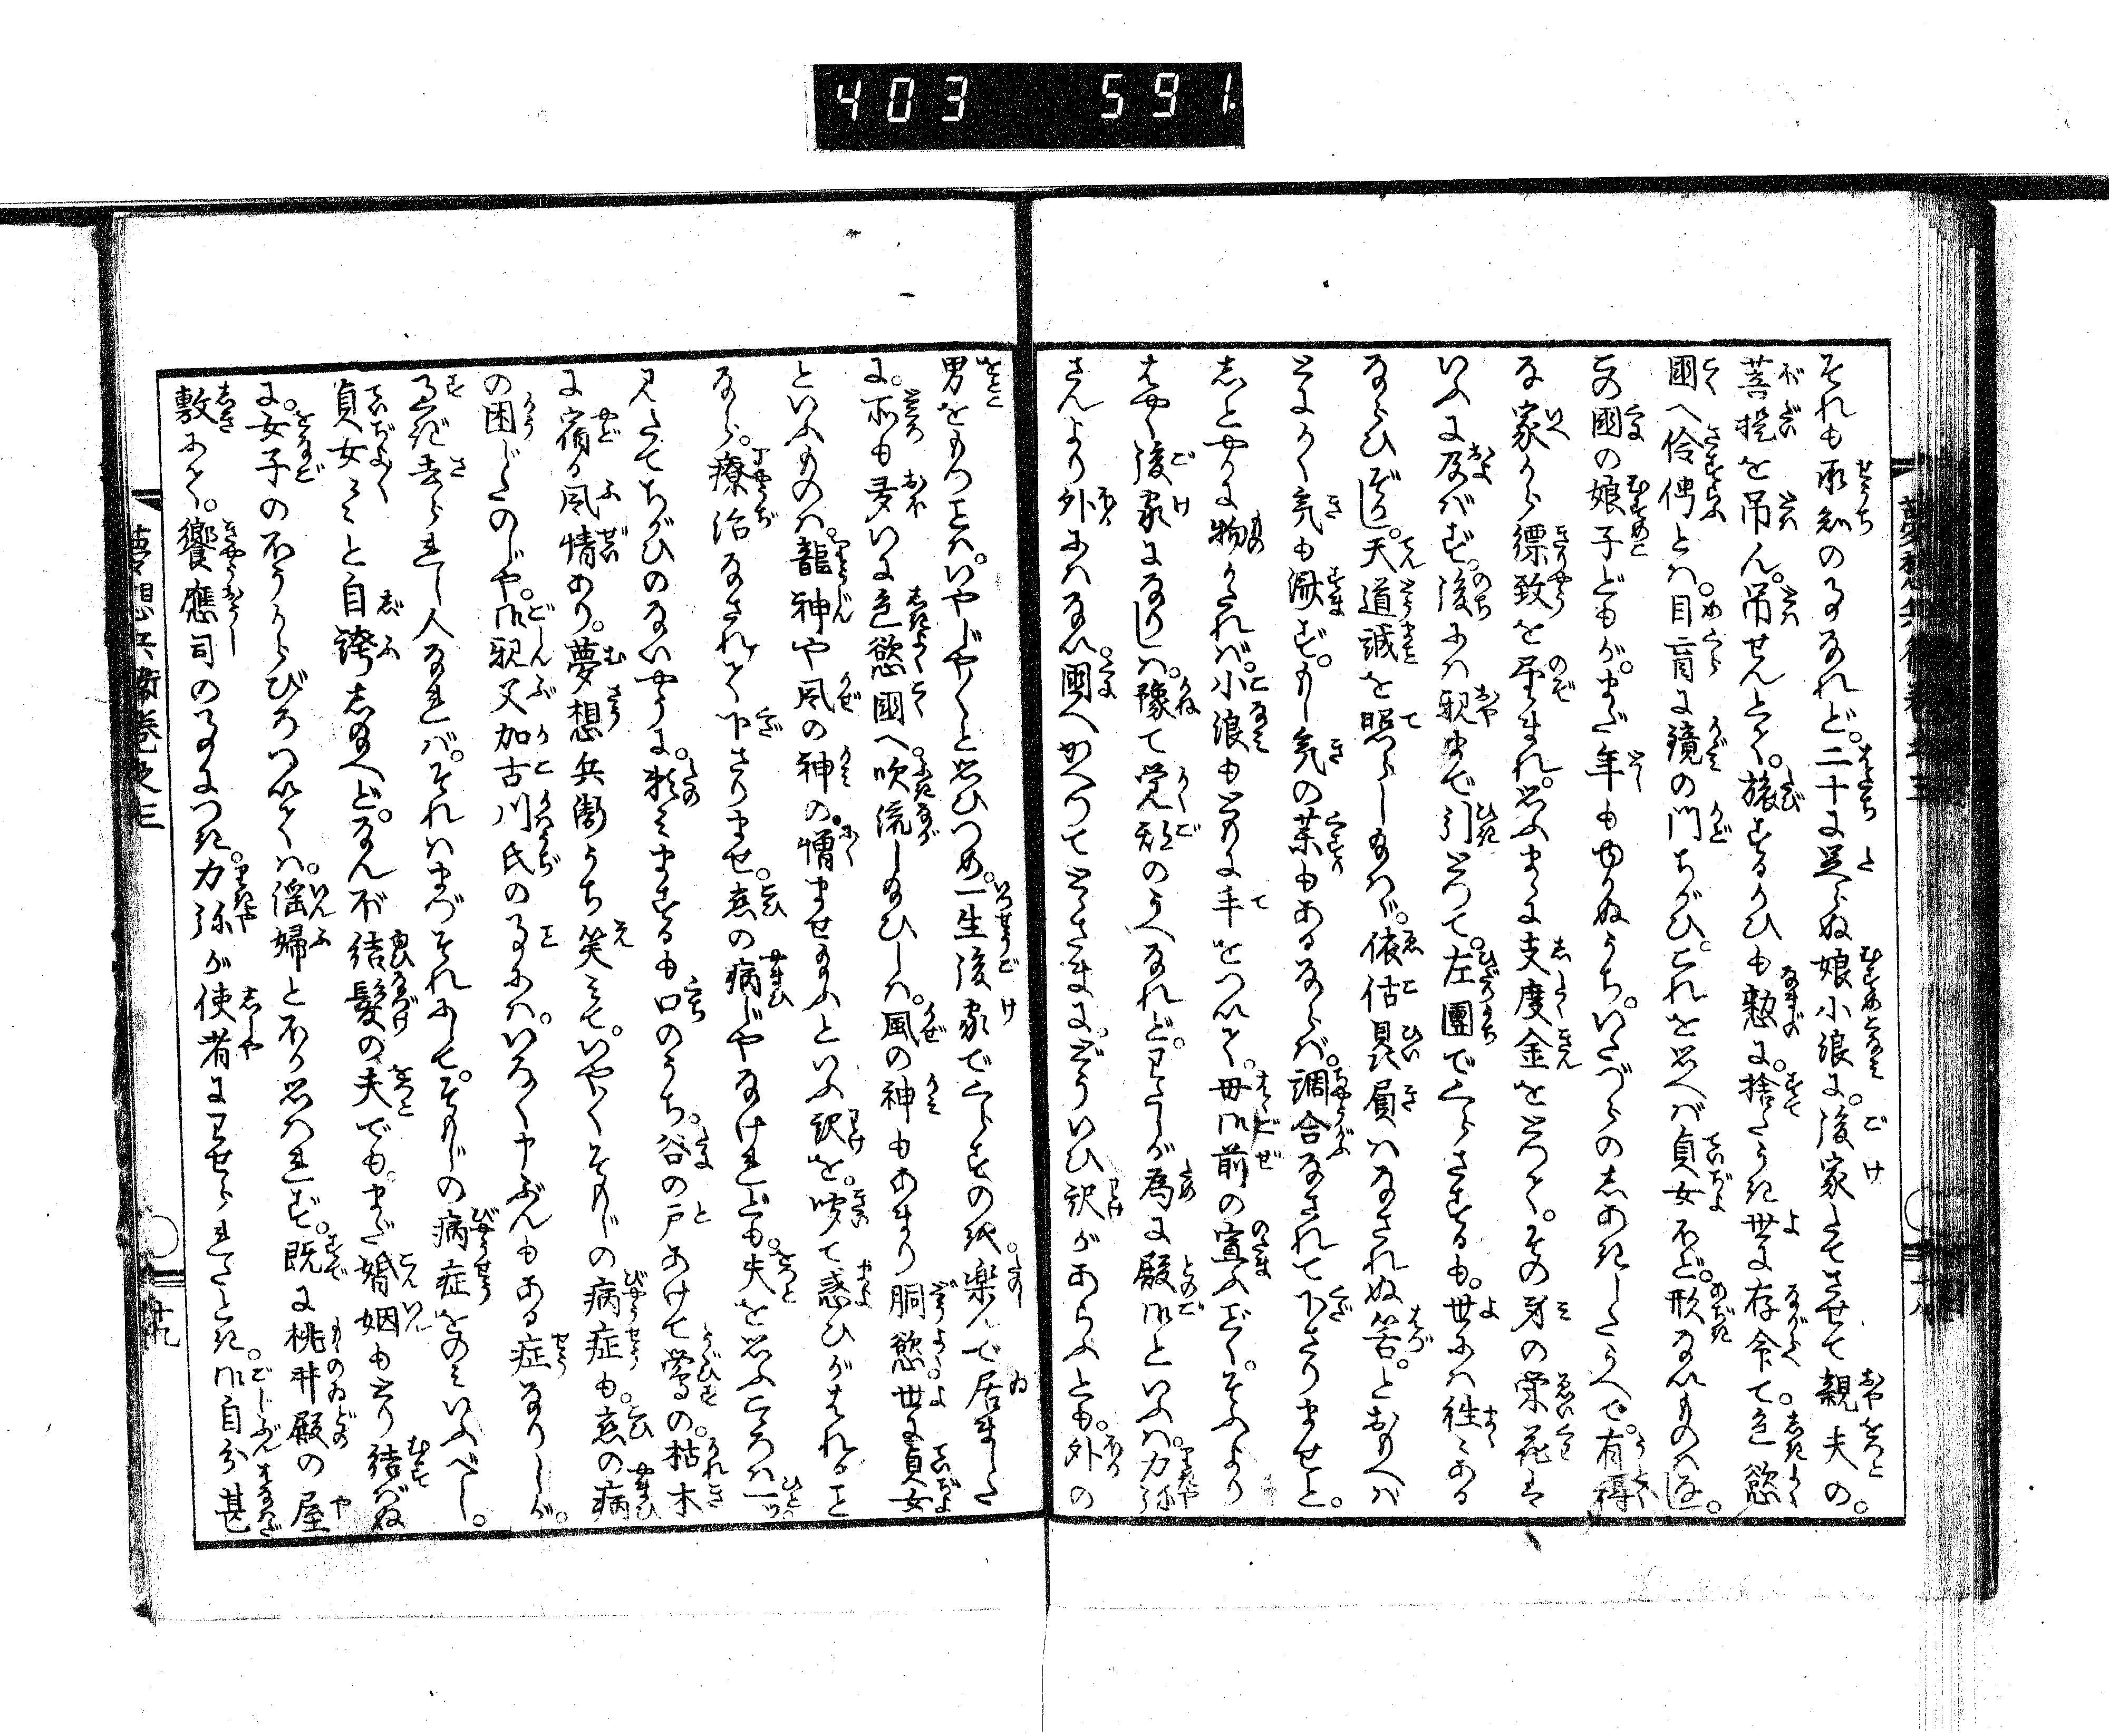 403 591
それも承知の事なれど。二十に足らぬ娘小浪に。後家たてさせて親夫の。
菩提を吊ん。吊せんとて。旅するかひも憖に。捨たうき世に存命て色慾
國へ伶俜とは。目盲に鏡の門ちがひ。これを思へば貞女ほど。形ないものは侭。
この國の娘子どもが。まだ年もゆかぬうち。いたづらのしあきしたうへで。有得
な家から縹致を望まれ。思ふまゝに支度金をとつて。その身の栄花は
いふに及ばず。後には親まで引とつて。左團でくらさするも。世には往々ある
ならひぞかし。天道誠を照らし給はゞ。依估贔屓はなされぬ筈。とおもへは
とにかく気も済ず。もし気の薬もあるならば。調合なされて下さりませと。
しとやかに物がたれば。小浪もともに手をついて。母御前の宣ふごく。そふより
はやく後家になりしは。豫て覚期のうへなれど。わたしが為に殿御といふは力弥
さんより外にはない。國へかへつてとさまに。どういひ訳があらふとも。外の
男をもつことは。いやじや〳〵と思ひつめ。一生後家でくらすのぢや。楽んで居ました
に。所も多いに色慾國へ吹流し給ひしは。風の神もあまり胴慾世に貞女
といふものは。龍神や風の神の。憎ませ給ふといふ訳を。听て惑ひがはれること
なら。療治なされて下さりませ。恋の病じやなけれども。夫を思ふこゝろは一つ
見たてちがひのないやうに。頼みまするも口のうち。谷の戸あけて鶯の。枯木
に宿る風情あり。夢想兵衛うち笑みて。いや〳〵そもじの病症も。恋の病
の困じたのじや。御親父加古川氏の事には。いろ〳〵申ぶんもある症なりしが。
過ぎ去られし人なれば。それはまづそれにして。そもじの病症をのみいふべし。
貞女々々と自誇し給へど。なんぼ結髪の夫でも。まだ婚姻もとり結ばぬ
に。女子の不うらびろついては。淫婦とほか思はれず。既に桃井殿の屋
敷にて。饗應司の事につき。力弥が使者にわせられたとき。御自分甚
夢想兵衛巻之三
廿九